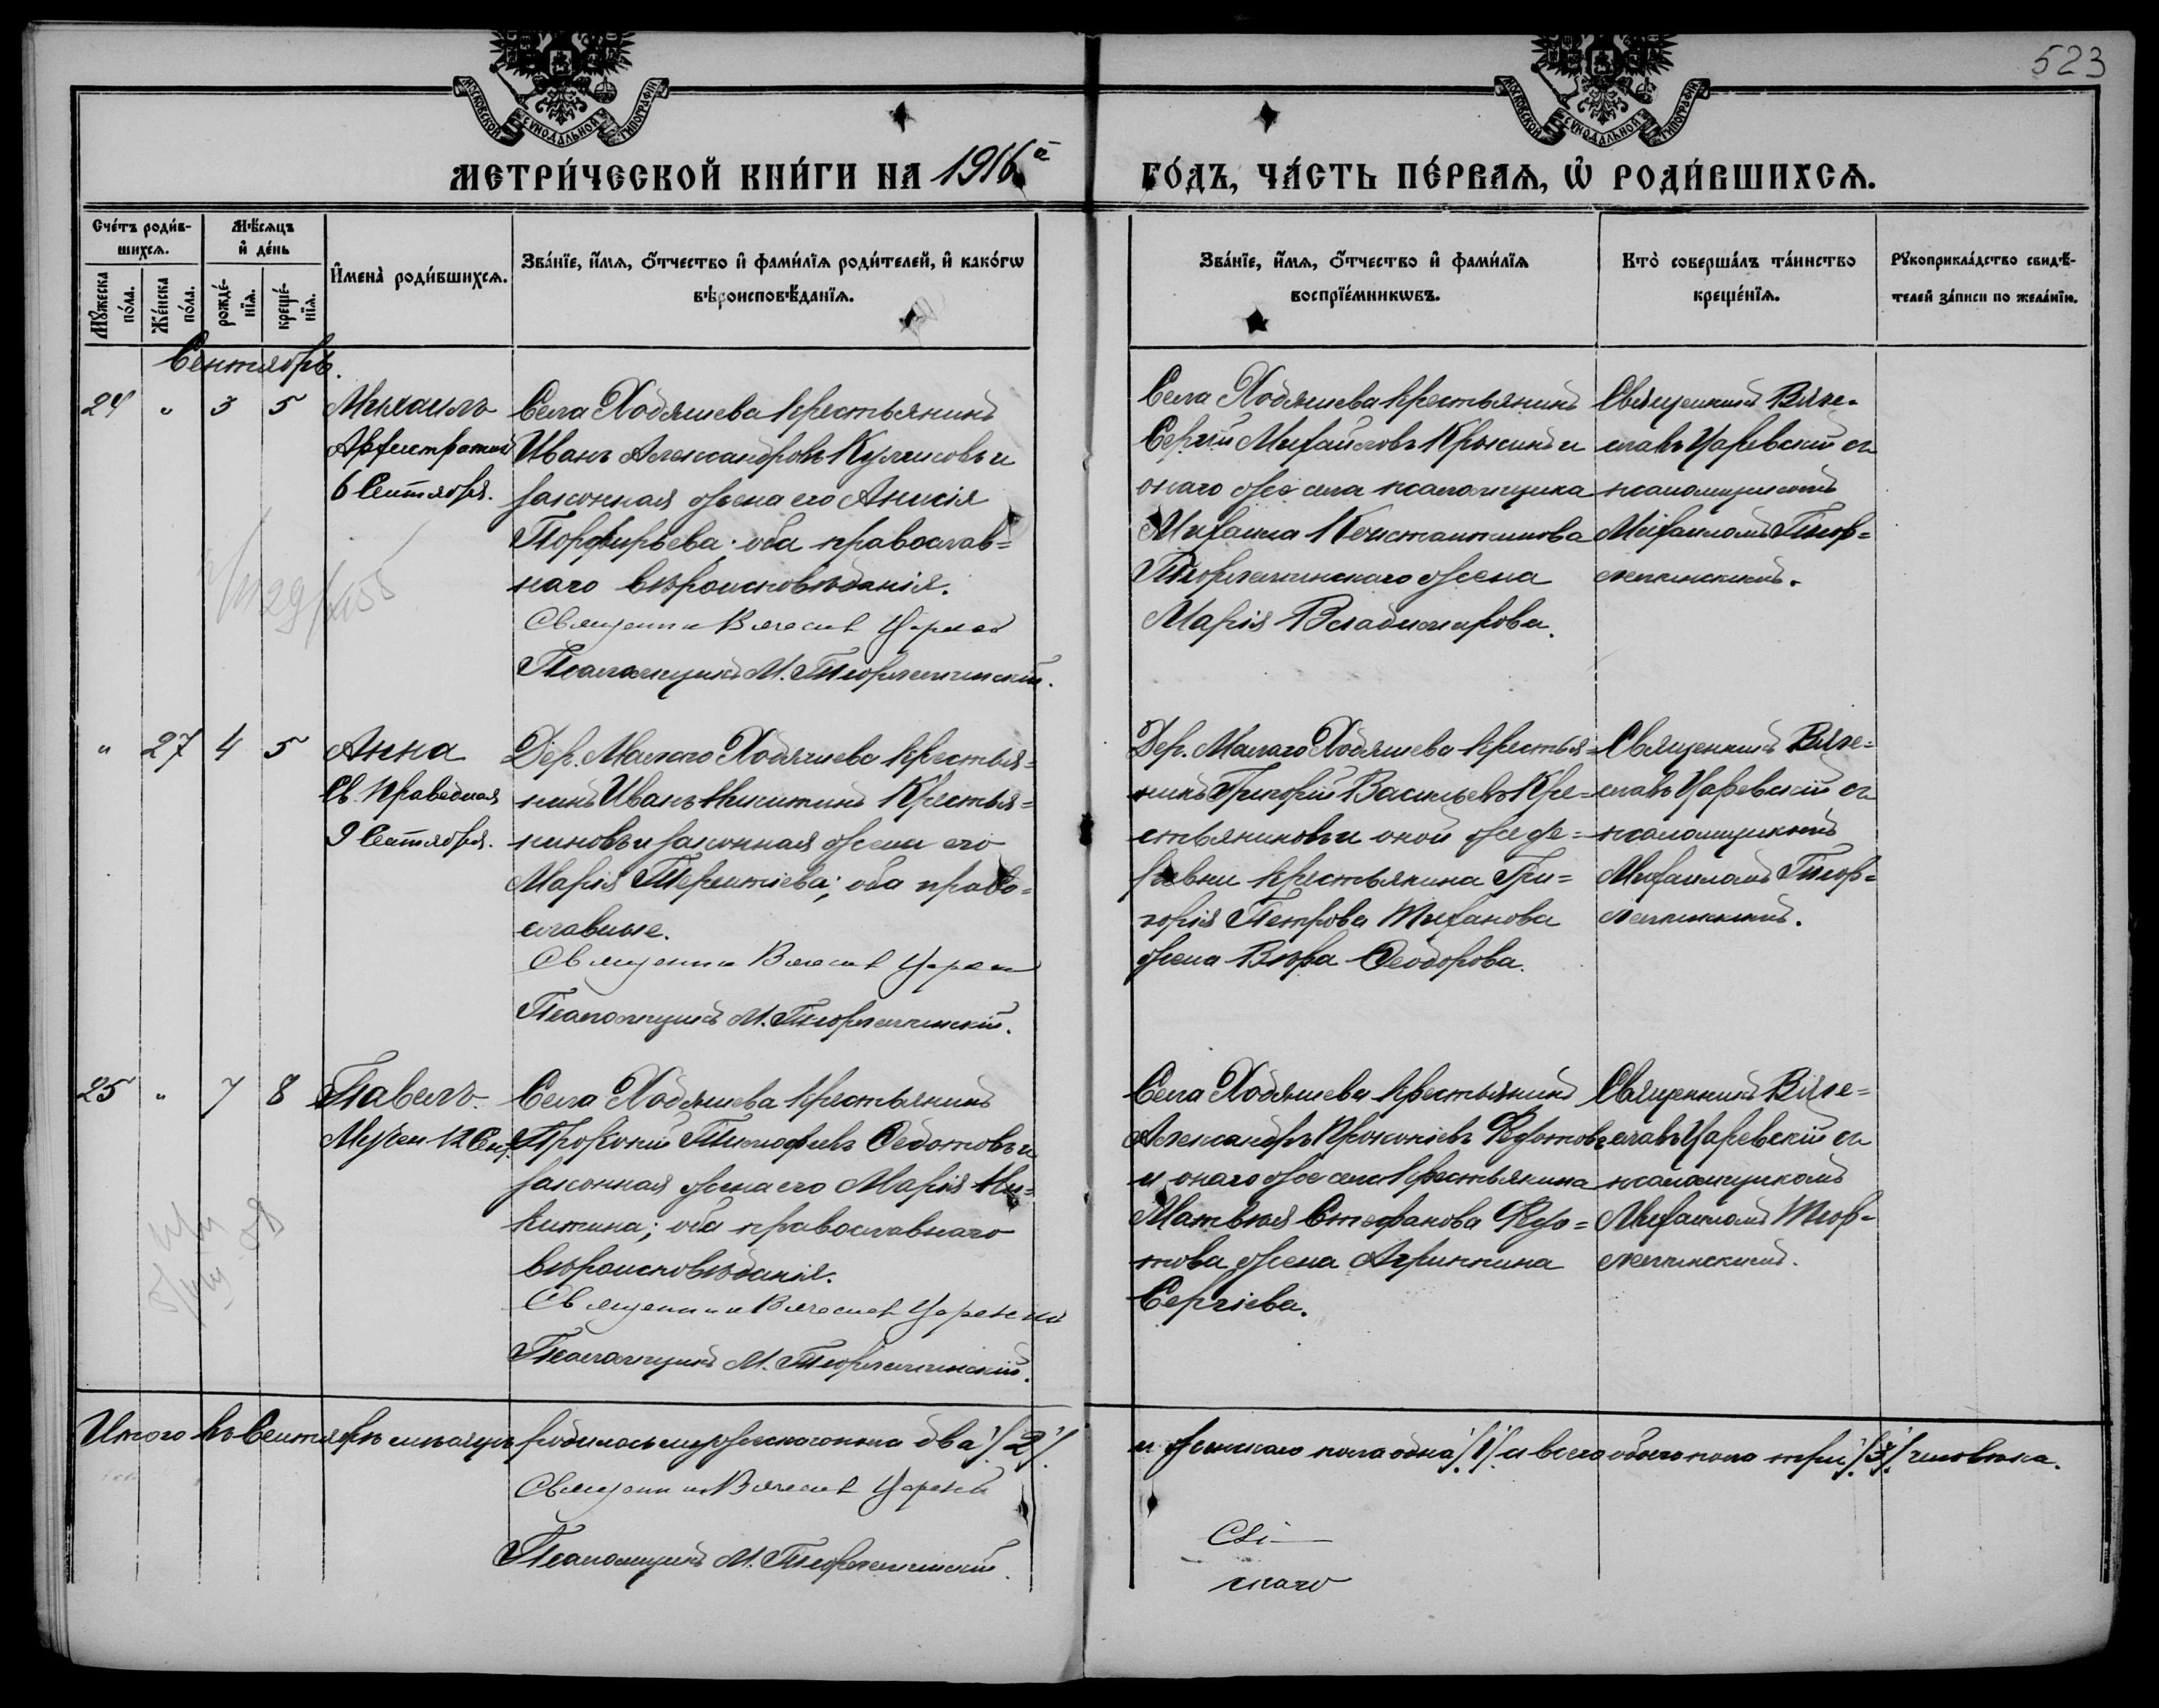 523
МОСКОВСКОЙ СѴНОДАЛЬНОЙ ТИПОГРАФІИ
МОСКОВСКОЙ СѴНОДАЛЬНОЙ ТИПОГРАФІИ
МЕТРИ́ЧЕСКОЙ КНИ́ГИ НА 1916й ГО́ДЪ, ЧА́СТЬ ПЕ́РВАѦ, Ѿ РОДИ́ВШИХСѦ.
Сче́тъ роди́в-
шихсѧ.
Мꙋжеска
по́ла.
Же́нска
по́ла.
Мѣ́сѧцъ
и҆ де́нь
рожде́-
нїѧ.
креще́-
нїѧ.
И҆мена̀ роди́вшихсѧ.
Зва́нїе, и҆́мѧ, о҆́тчество и҆ фами́лїѧ роди́телей, и҆ како́гѡ
вѣроисповѣ́данїѧ.
Зва́нїе, и҆́мѧ, о҆́тчество и҆ фами́лїѧ
воспрїе́мникѡвъ.
Кто̀ соверша́лъ та́инство
креще́нїѧ.
Рꙋкоприкла́дство свидѣ́-
телей за́писи по жела́нїю.
Сентябрь.
24 " 3 5
Михаилъ
Архистратигъ
6 Сентября.
Села Ходяшева крестьянинъ
Иванъ Александровъ Куликовъ и
законная жена его Анисія
Порфирьева; оба православ=
наго вѣроисповѣданія.
Священникъ Вячеславъ Царевскій
Псаломщикъ М.
Села Ходяшева крестьянинъ
Сергій Михайловъ и
онаго же села псаломщика
Михаила Константинова
жена
Марія Владимирова.
Священникъ Вяче-
славъ Царевскій съ
псаломщикомъ
Михаиломъ
" 27 4 5
Анна
Св. праведная
9 Сентября.
Дер. Малаго Ходяшева крестья=
нинъ Иванъ Никитинъ Крестья=
ниновъ и законная жена его
Марія Терентіева; оба право=
славные.
Священникъ Вячеславъ Царевскій
Псаломщикъ М.
Дер. Малаго Ходяшева крестья=
нинъ Григорій Васильевъ Кре=
стьяниновъ и оной же де=
ревни крестьянина Гри=
горія Петрова Тиханова
жена Вѣра Ѳеодорова.
Священникъ Вяче=
славъ Царевскій съ
псаломщикомъ
Михаиломъ
25 " 7 8
Павелъ
Мучен. 12 Сент.
Села Ходяшева крестьянинъ
Прокопій Тимофеевъ Ѳедотовъ и
законная жена его Марія Ни=
китина; оба православнаго
вѣроисповѣданія.
Священникъ Вячеславъ Царевскій
Псаломщикъ М.
Села Ходяшева крестьянинъ
Александръ Прокопіевъ Ѳедотовъ
и онаго же села крестьянина
Матвѣя Стефанова Ѳедо=
това жена Агриппина
Сергіева.
Священникъ Вяче=
славъ Царевскій съ
псаломщикомъ
Михаиломъ
Итого въ Сентябрѣ мѣсяцѣ родилось мужескаго пола два /2/ и женскаго пола одна /1/ и всего обоего пола три /3/ человѣка.
Священникъ Вячеславъ Царевскій
Псаломщикъ М.